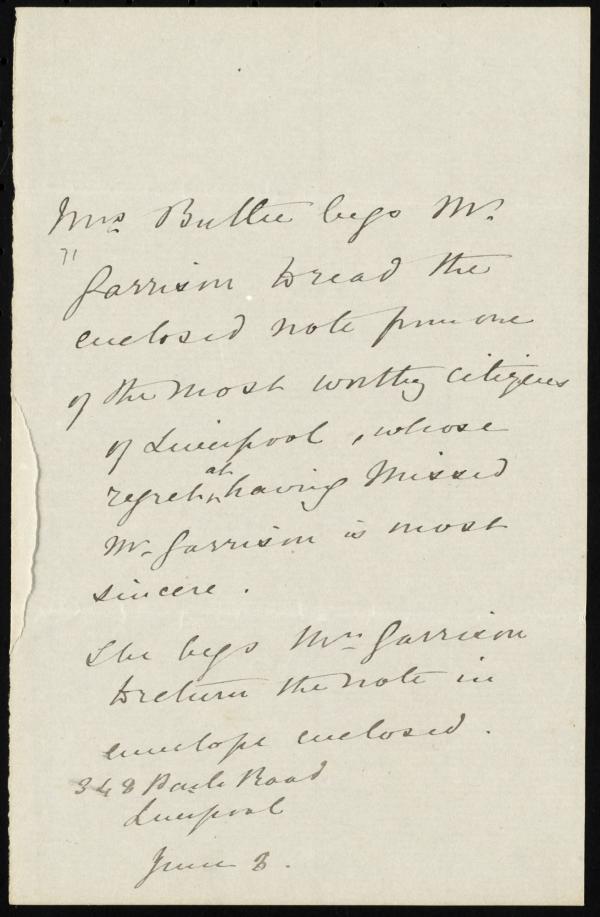 Mrs. Butler begs Mr.
71
Garrison to read the
enclosed note from one
of the most worthy citizens
of Liverpool, whose
regret at having missed
Mr. Garrison is most
sincere.
She begs Mr. Garrison
to return the note in
envelope enclosed.
348 Park Road
Liverpool
June 8.